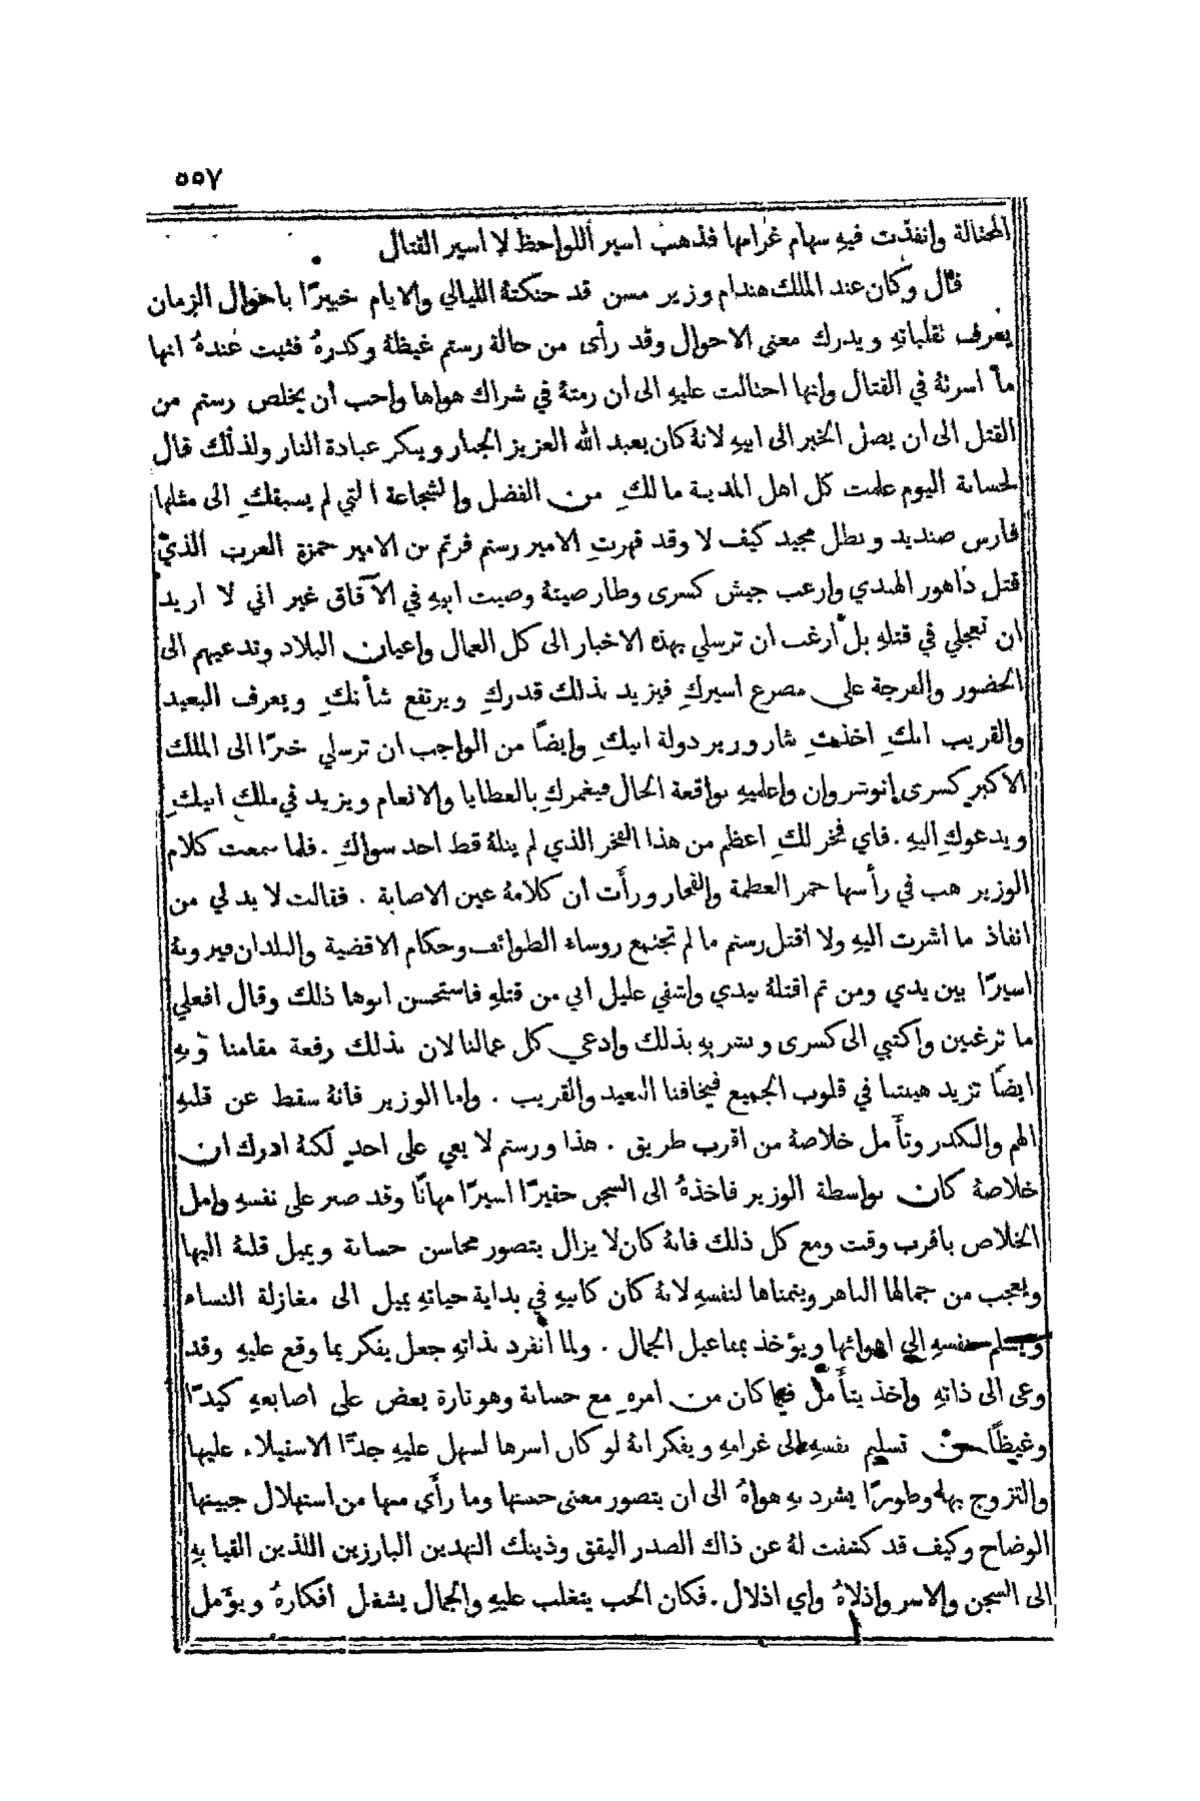 ٥٥٧
المحتالة وانفذت فيهِ سهام غرامها فذهب اسير اللواحظ لا اسير القتال
قال وكان عند الملك هندام وزير مسن قد حنكتهُ الليالي والايام خبيرًا باحوال الزمان
يعرف تقلباتهِ ويدرك معنى الاحوال وقد رأى من حالة رستم غيظهُ وكدرهُ فثبت عندهُ انها
ما اسرتهُ في القتال وانها احتالت عليهِ الى ان رمتهُ في شراك هواها واحب ان يخلص رستم من
القتل الى ان يصل الخبر الى ابيهِ لانهُ كان يعبد الله العزيز الجبار وينكر عبادة النار ولذلك قال
لحسانة اليوم علمت كل اهل المدينة ما لكِ من الفضل والشجاعة التي لم يسبقكِ الى مثلها
فارس صنديد وبطل مجيد كيف لا وقد قهرتِ الامير رستم فرتم بن الامير حمزة العرب الذي
قتل ذاهور الهندي وارعب جيش كسرى وطار صيتهُ وصيت ابيهِ في الآفاق غير اني لا اريد
ان تعجلي في قتلهِ بل ارغب ان ترسلي بهذه الاخبار الى كل العمال واعيان البلاد وتدعيهم الى
الحضور والفرجة على مصرع اسيركِ فيزيد بذلك قدركِ ويرتفع شأنكِ ويعرف البعيد
والقريب انكِ اخذتِ بثار وزير دولة ابيكِ وايضًا من الواجب ان ترسلي خبرًا الى الملك
الاكبر كسرى انوشروان واعلميهِ بواقعة الحال فيغمركِ بالعطايا والانعام ويزيد في ملك ابيكِ
ويدعوكِ اليهِ . فاي فخر لكِ اعظم من هذا الفخر الذي لم ينلهُ قط احد سواكِ . فلما سمعت كلام
الوزير هب في رأسها خمر العظمة والفخار ورأت ان كلامهُ عين الاصابة . فقالت لا بد لي من
انفاذ ما اشرت اليهِ ولا اقتل رستم ما لم تجتمع روساء الطوائف وحكام الاقضية والبلدان فيرونهُ
اسيرًا بين يدي ومن ثم اقتلهُ بيدي واشفي غليل ابي من قتلهِ فاستحسن ابوها ذلك وقال افعلي
ما ترغبين واكتبي الى كسرى وبشريهِ بذلك وادعي كل عمالنا لان بذلك رفعة مقامنا وبهِ
ايضًا تزيد هيبتنا في قلوب الجميع فيخافنا البعيد والقريب . واما الوزير فانهُ سقط عن قلبهِ
الهم والكدر وتأمل خلاصهُ من اقرب طريق . هذا ورستم لا يعي على احدٍ لكنهُ ادرك ان
خلاصهُ كان بواسطة الوزير فاخذهُ الى السجن حقيرًا اسيرًا مهانًا وقد صبر على نفسهِ وامل
الخلاص باقرب وقت ومع كل ذلك فانهُ كان لا يزال يتصور محاسن حسانة ويميل قلبهُ اليها
ويعجب من جمالها الباهر ويتمناها لنفسهِ لانهُ كان كابيهِ في بداية حياتهِ يميل الى مغازلة النساء
ويسلم بنفسهِ الى اهوائها ويؤخذ بمفاعيل الجمال . ولما انفرد بذاتهِ جعل يفكر بما وقع عليهِ وقد
وعى الى ذاتهِ واخذ يتأمل فيما كان من امرهِ مع حسانة وهو تارة يعض على اصابعهِ كيدًا
وغيظًا من تسليم نفسهِ الى غرامهِ ويفكر انهُ لو كان اسرها لسهل عليهِ جدًّا الاستيلاء عليها
والتزوج بها وطورًا يشرد بهِ هواهُ الى ان يتصور معنى حسنها وما رأى منها من استهلال جبينها
الوضاح وكيف قد كشفت لهُ عن ذاك الصدر اليقق وذينك النهدين البارزين اللذين القيا بهِ
الى السجن والاسر واذلاهُ واي اذلال . فكان الحب يتغلب عليهِ والجمال يشغل افكارهُ ويؤمل